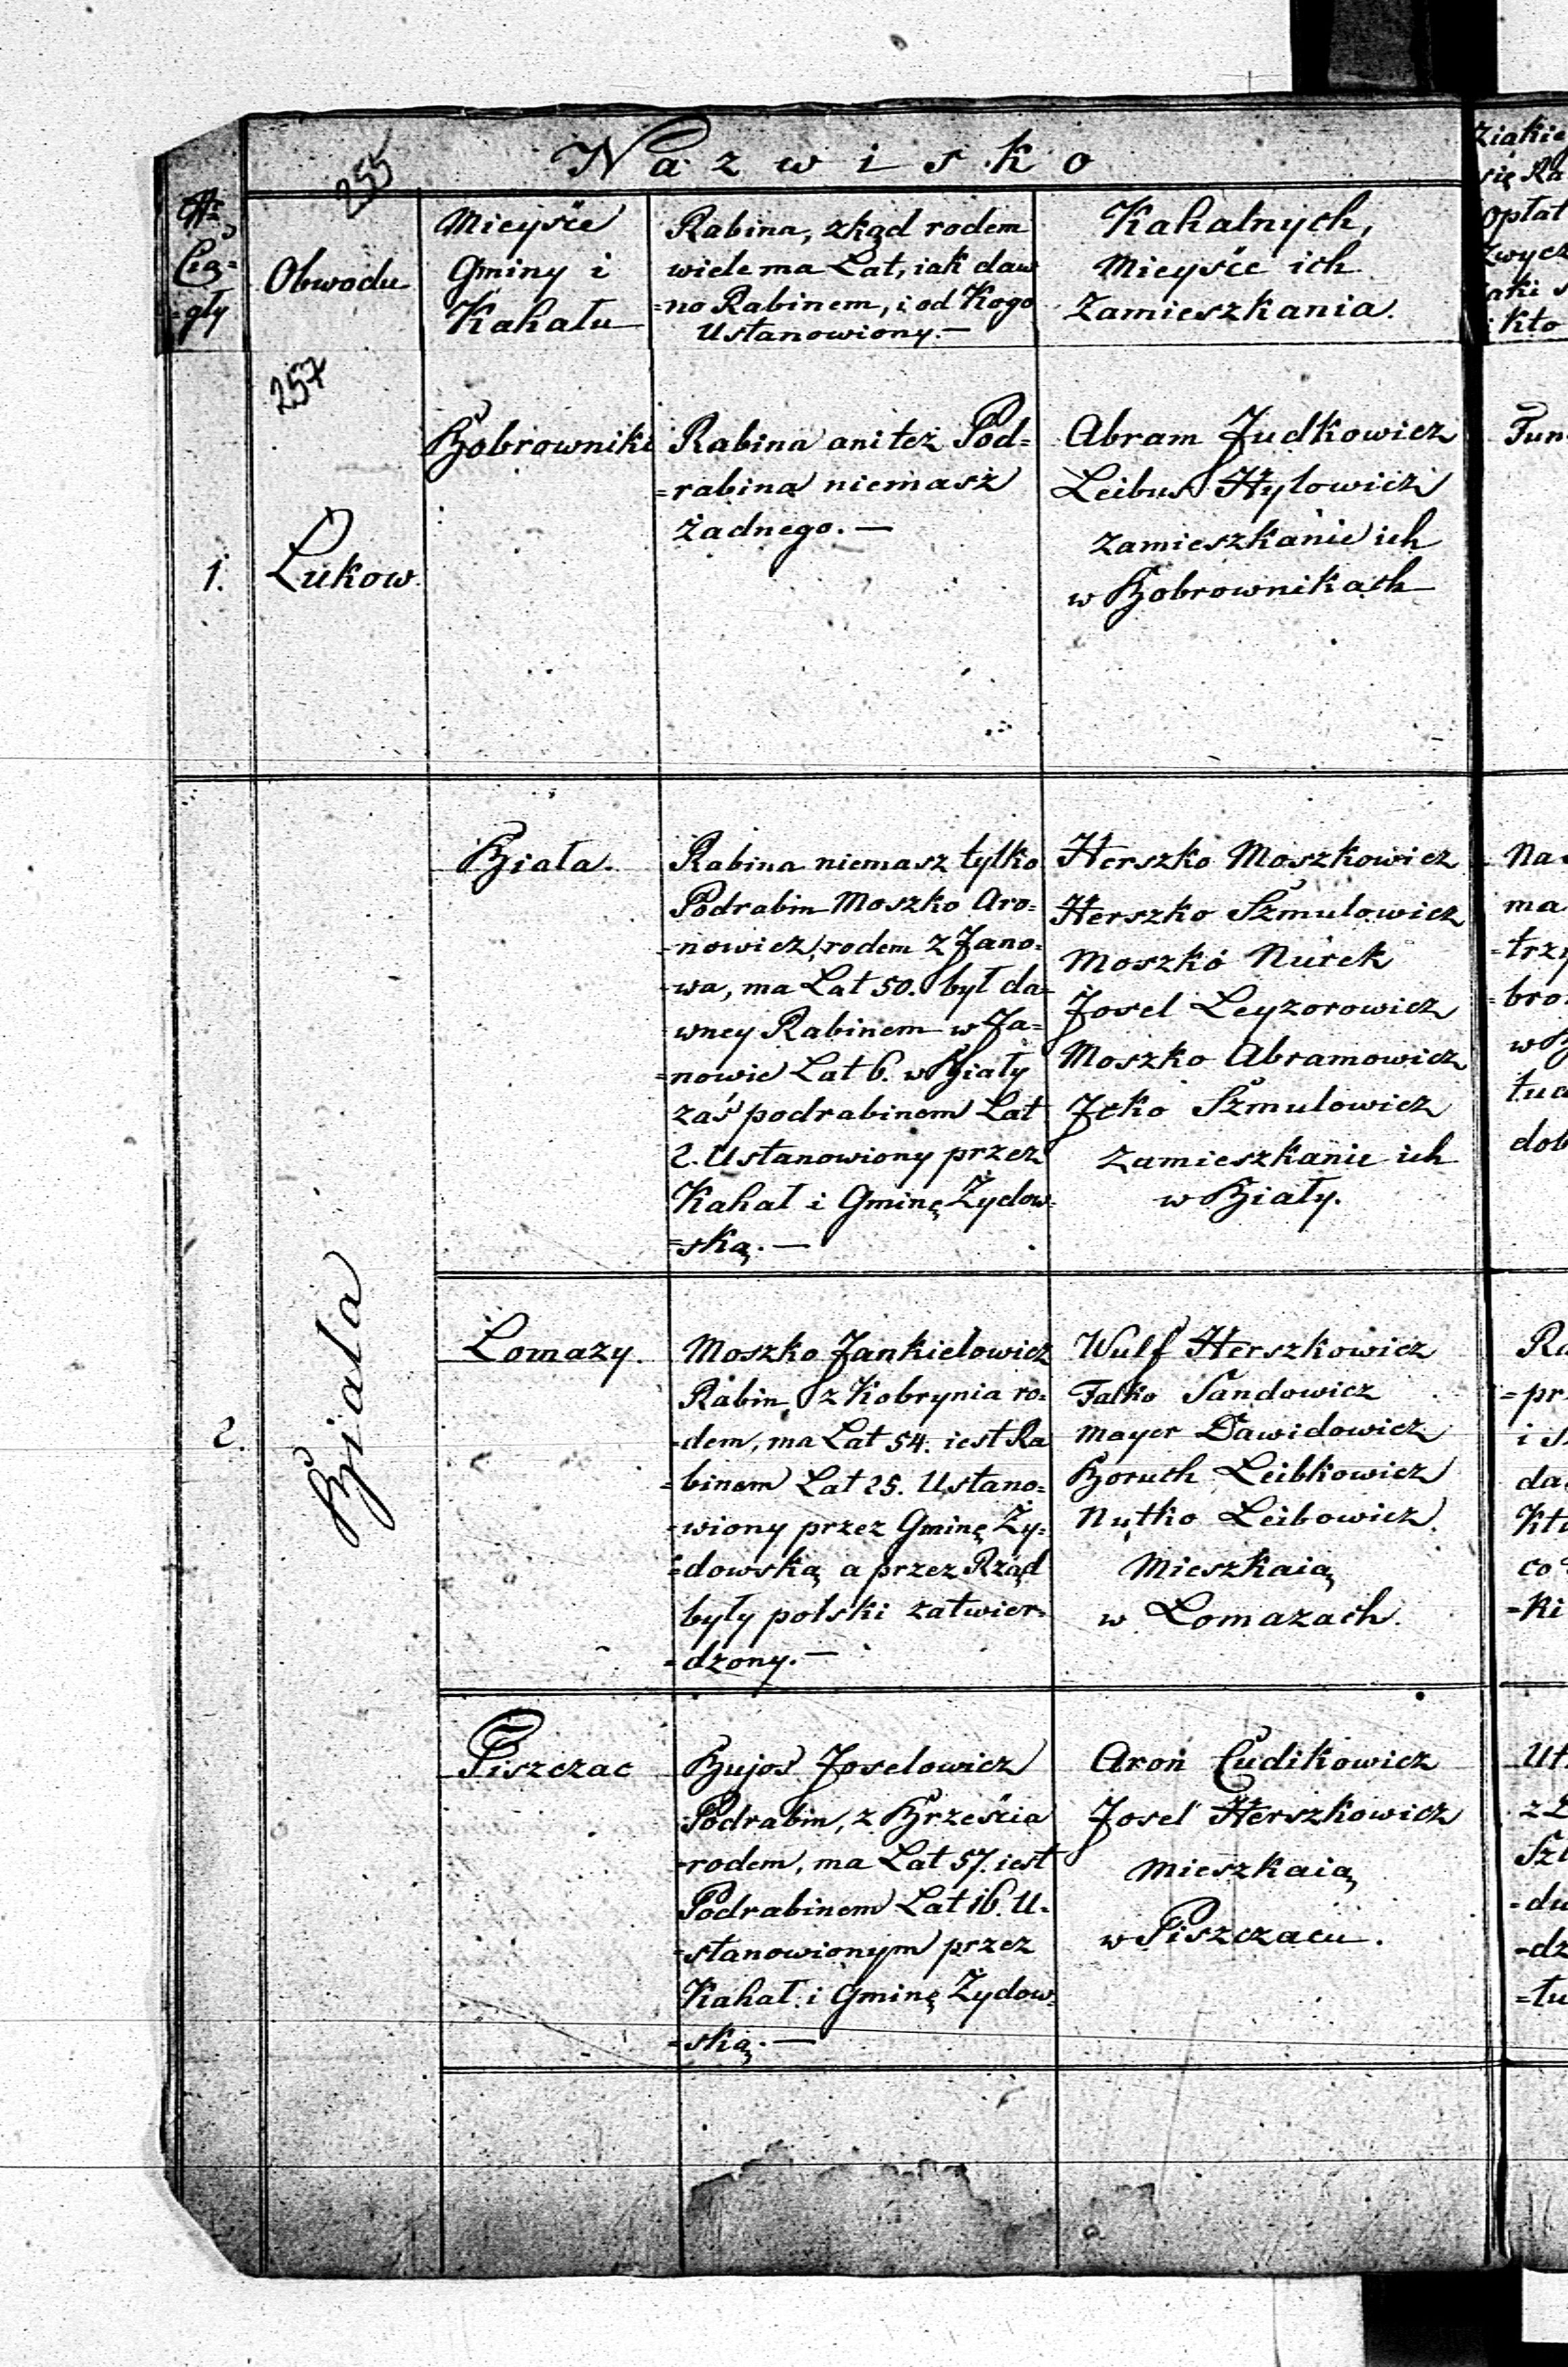 Nazwisko
255
Nr
Cią=
=gły
Obwodu
Mieysce
Gminy i
Kahału
Rabina, zkąd rodem
wiele ma Lat, iak daw
=no Rabinem, i od Kogo
Ustanowiony.—
Kahalnych,
Mieysce ich
Zamieszkania.
ziakie
się Ra
Opłat
Zwycz
iaki s
i kto
257
1.
Łukow
Bobrowniki
Rabina ani też Pod=
=rabina niemasz
żadnego.—
Abram Judkowicz
Leibus Hylowicz
zamieszkanie ich
w Bobrownikach
Fun
2.
Biała
Biała.
Rabina niemasz tylko
Podrabin Moszko Aro=
=nowicz, rodem z Jano=
=wa, ma Lat 50. był da=
wney Rabinem w Ja=
=nowie Lat 6. w Biały
zaś podrabinem Lat
2. Ustanowiony przez
Kahał i Gminę Żydow=
=ską.—
Herszko Moszkowicz
Herszko Szmulowicz
Moszko Nurek
Josel Leyzorowicz
Moszko Abramowicz
Jcko Szmulowicz
Zamieszkanie ich
w Biały.
Na
ma
=trzy
=bro
w B
tud
dob
Lomazy.
Moszko Jankielowicz
Rabin, z Kobrynia ro=
=dem, ma Lat 54. iest Ra
=binem Lat 25. Ustano=
=wiony przez Gminę Ży=
=dowską a przez Rząd
były polski zatwier=
=dzony.—
Wulf Herszkowicz
Falko Sandowicz
Mayer Dawidowicz
Boruch Leibkowicz
Nutko Leibowicz
Mieszkaią
w Lomazach.
Ra
=pr
i s
da
Kt
co
=ki
Piszczac
Bujos Joselowicz
Podrabin, z Brześcia
=rodem, ma Lat 57. iest
Podrabinem Lat 16. U=
=stanowionym przez
Kahał i Gminę Żydow=
=ską.—
Aron Cudikowicz
Josel Herszkowicz
Mieszkaią
w Piszczacu.
Ut
z
Szl
=du
=dz
=tu